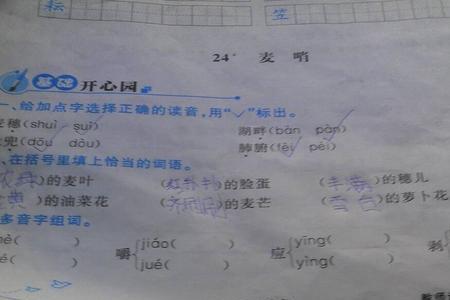 耘 笠
24* 麦哨
基础 开心园
一、给加点字选择正确的读音,用"✓"标出。
穗(shuì suì) 湖畔(bàn pàn)
兜(dōu dòu) 肺腑(fèi pèi)
、在括号里填上恰当的词语。
的麦叶 (红扑扑)的脸蛋 (丰满)的穗儿
的油菜花 (齐刷刷)的麦芒 (雪白)的萝卜花
多音字组词。
嚼 jiáo( ) 应 yīng( ) 剥
jué( ) yìng( )